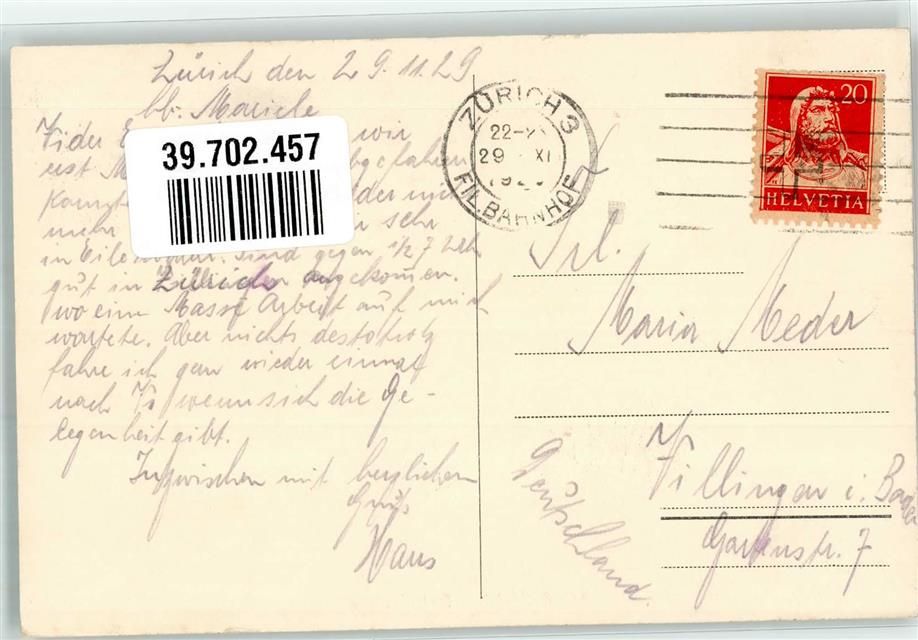 Zürich den 29.11.29
lb. Mariele
wir
erst abgefahren
nicht
mehr sehr
in gegen ½ 7 Uhr
gut in Zürich angekommen.
wo eine Masse Arbeit auf mich
wartete. Aber nichts destotrotz
fahre ich gern wieder einmal
nach Vs wenn sich die Ge-
legenheit gibt.
Inzwischen mit herzlichem
Gruß
Hans
39.702.457
ZÜRICH 3
22-XI
29 XI
192
FIL. BAHNHOF
20
HELVETIA
Frl.
Maria Meder
Villingen i. Baden
Gartenstr. 7
Deutschland